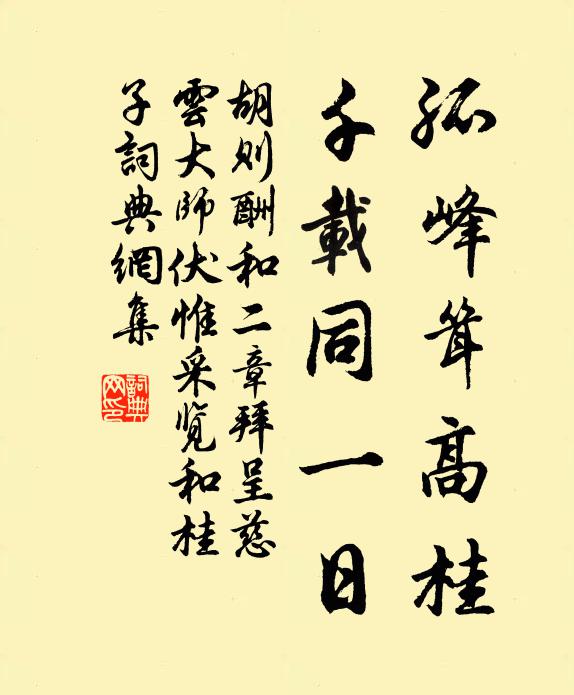 孤峰聳高桂
千載同一日
胡则酬和二章拜呈慈
雲大師伏惟采览和桂
子詞典網集
詞典
网印